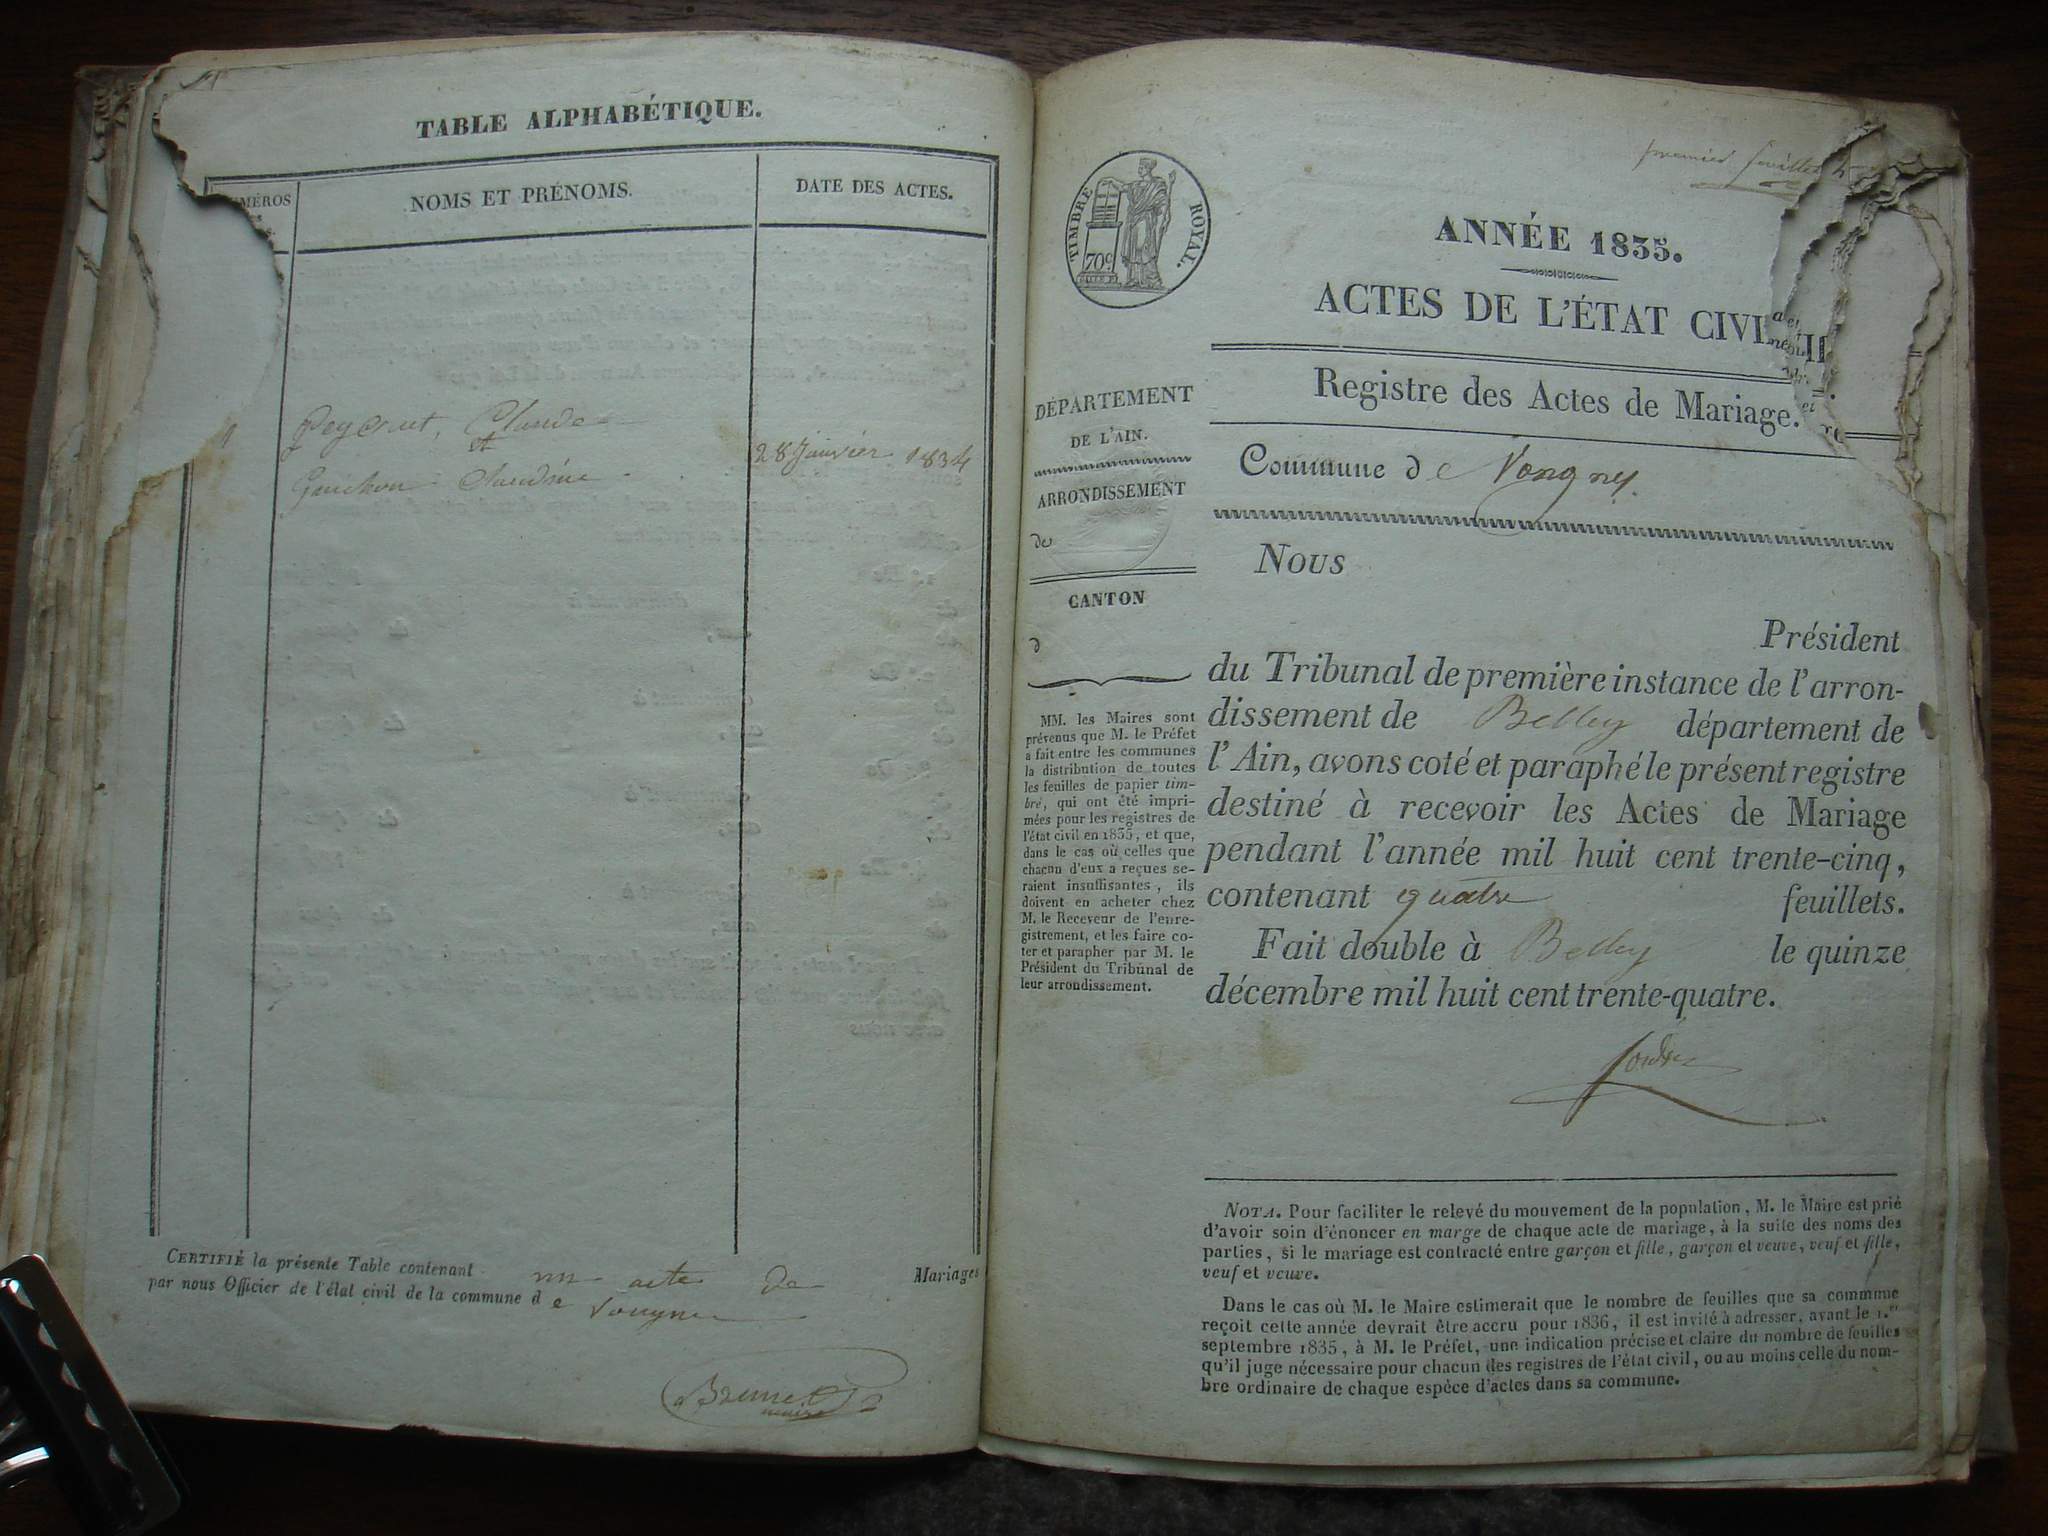 TABLE ALPHABÉTIQUE.
MÉROS
NOMS ET PRÉNOMS.
DATE DES ACTES.
1
Peycrut, Claude
et
Gauchon Claudine
28 janvier 1834
CERTIFIÉ la présente Table contenant un acte de Mariages
par nous Officier de l'état civil de la commune de Vougne
Brunet
maire
premier feuillet
TIMBRE ROYAL.
70c
ANNÉE 1835.
ACTES DE L'ÉTAT CIVIL
Registre des Actes de Mariage.
Commune de Vongnes.
DÉPARTEMENT
DE L'AIN.
ARRONDISSEMENT
de
CANTON
d
MM. les Maires sont
prévenus que M. le Préfet
a fait entre les communes
la distribution de toutes
les feuilles de papier tim-
bré, qui ont été impri-
mées pour les registres de
l'état civil en 1835, et que,
dans le cas où celles que
chacun d'eux a reçues se-
raient insuffisantes, ils
doivent en acheter chez
M. le Receveur de l'enre-
gistrement, et les faire co-
ter et parapher par M. le
Président du Tribunal de
leur arrondissement.
Nous
Président
du Tribunal de première instance de l'arron-
dissement de Belley département de
l'Ain, avons coté et paraphé le présent registre
destiné à recevoir les Actes de Mariage
pendant l'année mil huit cent trente-cinq,
contenant quatre feuillets.
Fait double à Belley le quinze
décembre mil huit cent trente-quatre.
NOTA. Pour faciliter le relevé du mouvement de la population, M. le Maire est prié
d'avoir soin d'énoncer en marge de chaque acte de mariage, à la suite des noms des
parties, si le mariage est contracté entre garçon et fille, garçon et veuve, veuf et fille,
veuf et veuve.
Dans le cas où M. le Maire estimerait que le nombre de feuilles que sa commune
reçoit cette année devrait être accru pour 1836, il est invité à adresser, avant le 1.er
septembre 1835, à M. le Préfet, une indication précise et claire du nombre de feuilles
qu'il juge nécessaire pour chacun des registres de l'état civil, ou au moins celle du nom-
bre ordinaire de chaque espèce d'actes dans sa commune.